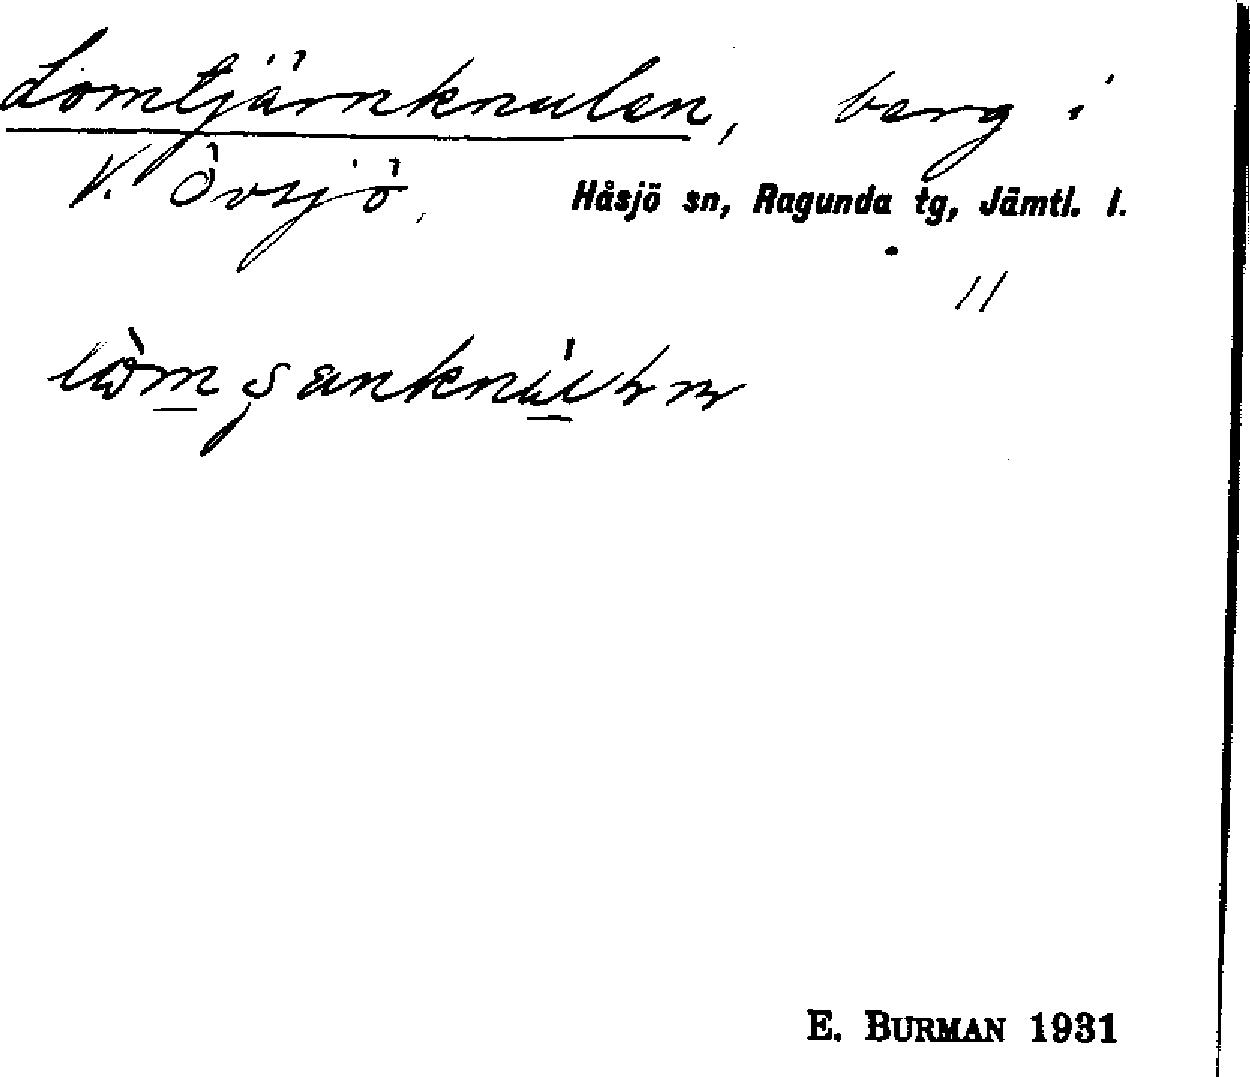 Lomtjärnknulen, berg i
V. Övsjö,
Håsjö sn, Ragunda tg, Jämtl. l.
11
E. BURMAN 1931